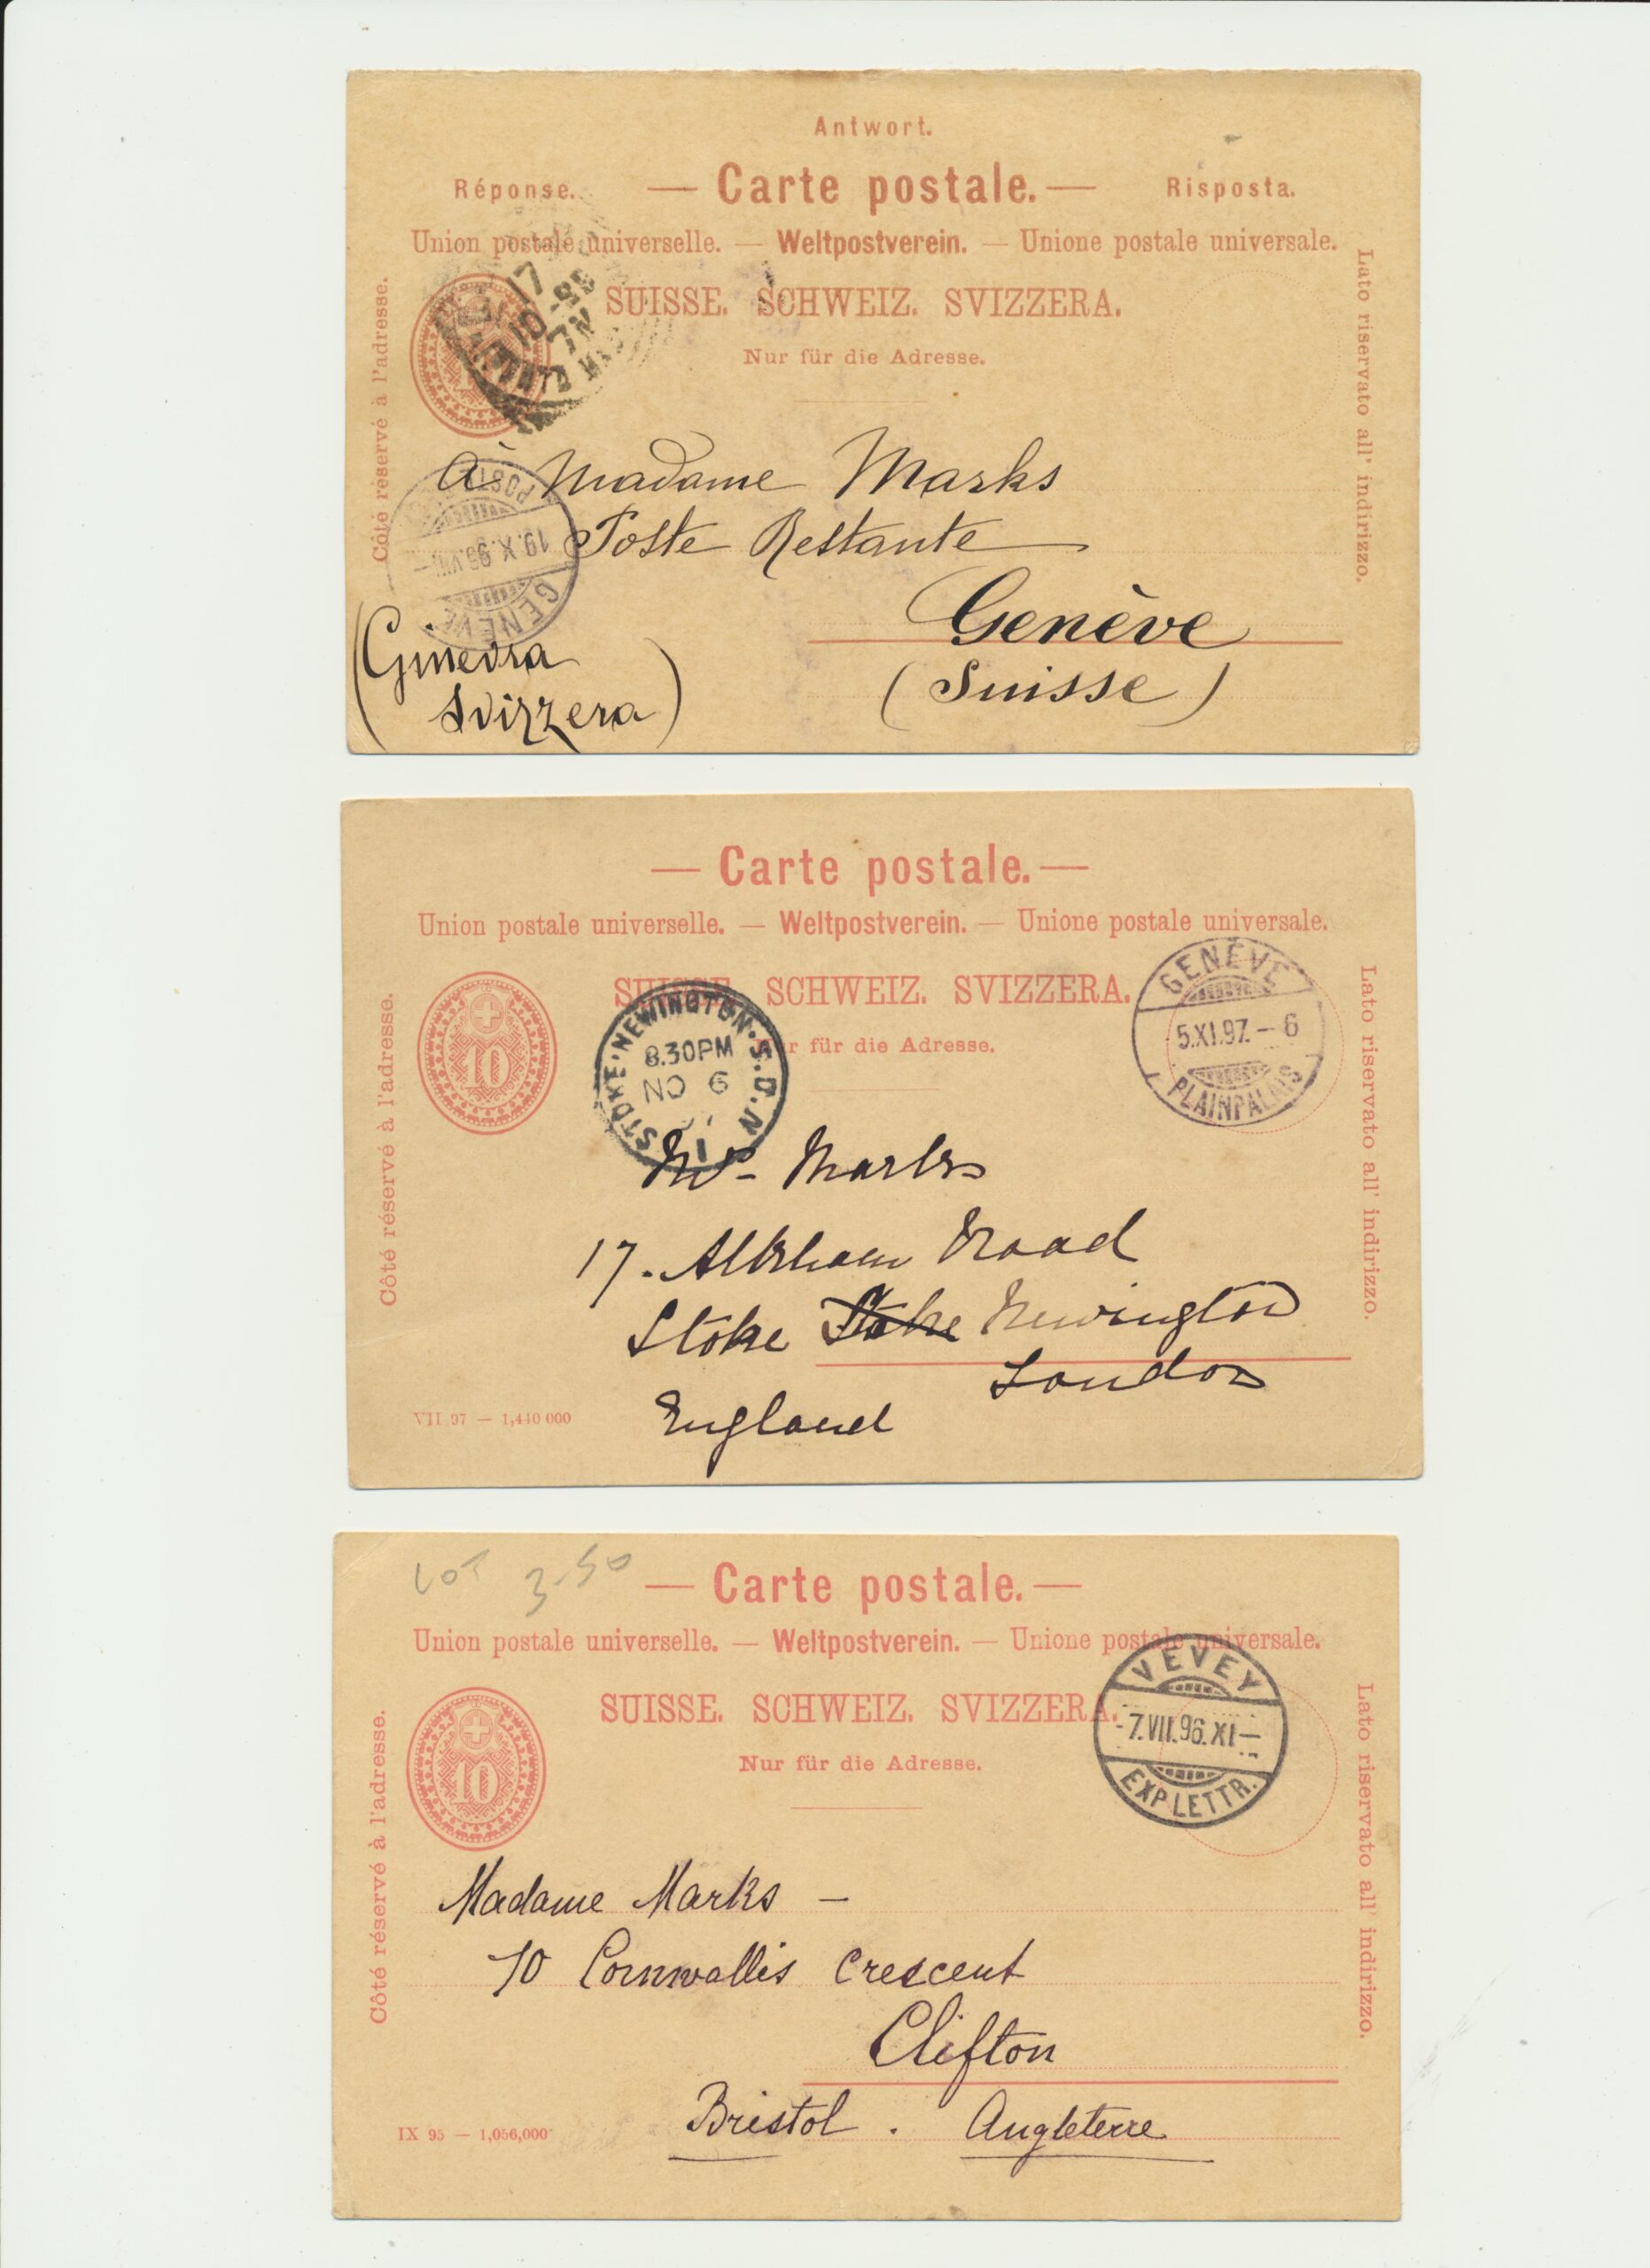 Antwort.
Réponse. — Carte postale. — Risposta.
Union postale universelle. — Weltpostverein. — Unione postale universale.
SUISSE. SCHWEIZ. SVIZZERA.
Nur für die Adresse.
Côté réservé à l'adresse.
Lato riservato all' indirizzo.
17
10
GENÈVE
19.X.96.VIII—
POSTE
À Madame Marks
Poste Restante
Genève
(Suisse)
(Ginevra
Svizzera)
— Carte postale. —
Union postale universelle. — Weltpostverein. — Unione postale universale.
SUISSE. SCHWEIZ. SVIZZERA.
Nur für die Adresse.
Côté réservé à l'adresse.
Lato riservato all' indirizzo.
10
STOKE·NEWINGTON·S.O.N
8.30PM
NO 6
1
GENÈVE
5.XI.97.—6
PLAINPALAIS
Mrs Marks
17. Road
Stoke Stoke Newington
London
England
VII 97 — 1,440 000
LOT 3-50
— Carte postale. —
Union postale universelle. — Weltpostverein. — Unione postale universale.
SUISSE. SCHWEIZ. SVIZZERA.
Nur für die Adresse.
Côté réservé à l'adresse.
Lato riservato all' indirizzo.
10
VEVEY
-7.VII.96.XI—
EXP.LETTR.
Madame Marks —
10 Cornwallis Crescent
Clifton
Bristol. Angleterre
IX 95 — 1,056,000